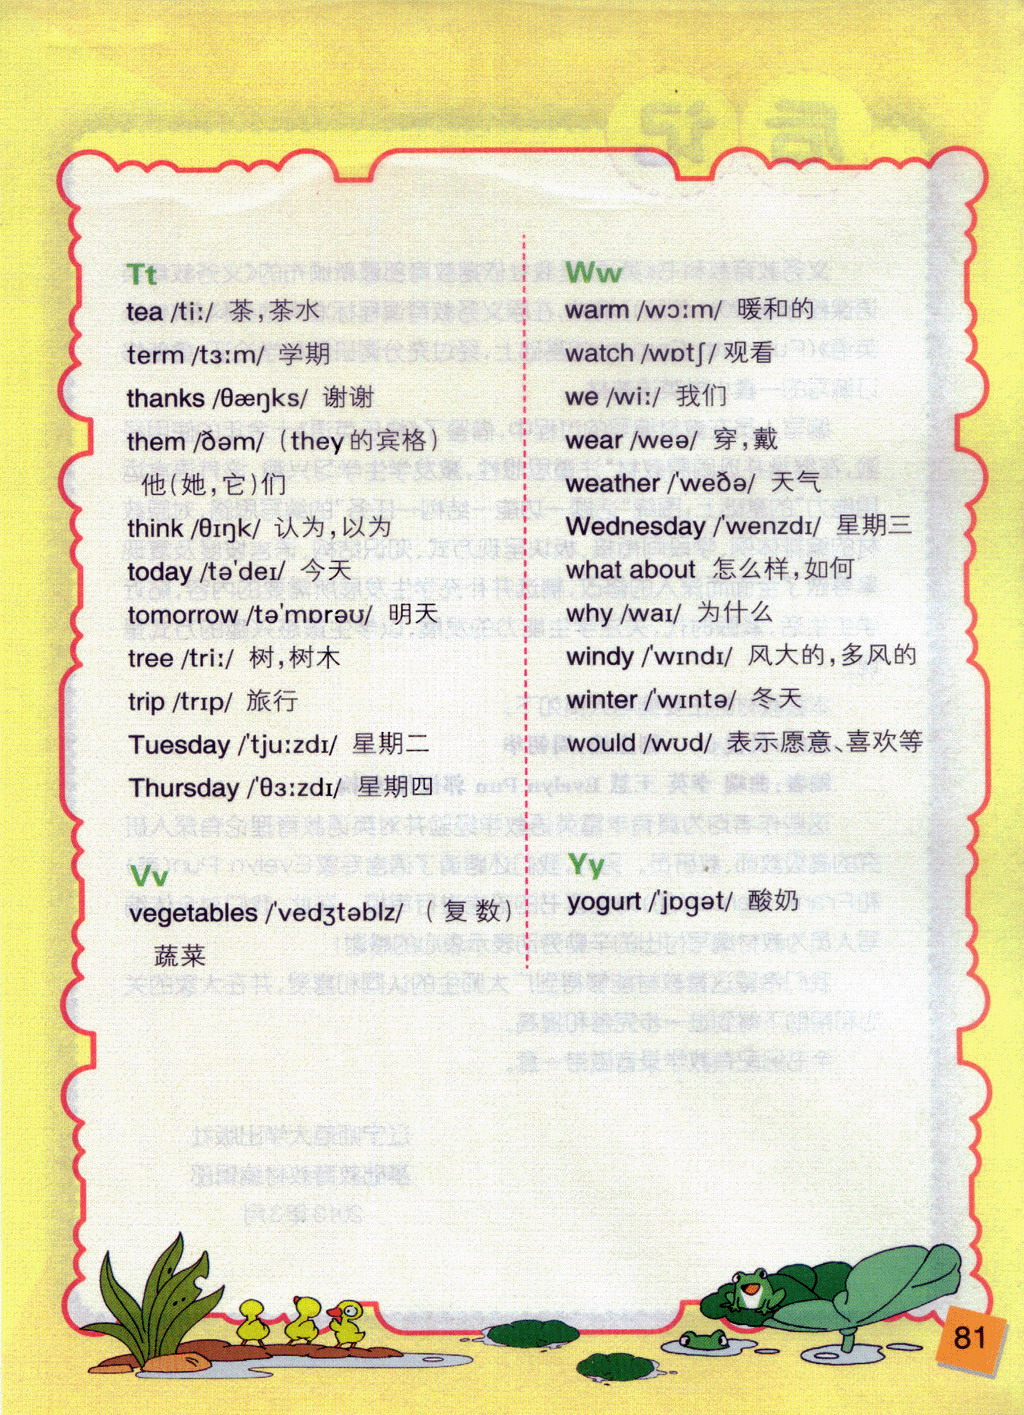 Tt
tea /tiː/ 茶,茶水
term /tɜːm/ 学期
thanks /θæŋks/ 谢谢
them /ðəm/ (they的宾格)
他(她,它)们
think /θɪŋk/ 认为,以为
today /tə'deɪ/ 今天
tomorrow /tə'mɒrəʊ/ 明天
tree /triː/ 树,树木
trip /trɪp/ 旅行
Tuesday /'tjuːzdɪ/ 星期二
Thursday /'θɜːzdɪ/ 星期四
Vv
vegetables /'vedʒtəblz/ (复数)
蔬菜
Ww
warm /wɔːm/ 暖和的
watch /wɒtʃ/ 观看
we /wiː/ 我们
wear /weə/ 穿,戴
weather /'weðə/ 天气
Wednesday /'wenzdɪ/ 星期三
what about 怎么样,如何
why /waɪ/ 为什么
windy /'wɪndɪ/ 风大的,多风的
winter /'wɪntə/ 冬天
would /wʊd/ 表示愿意、喜欢等
Yy
yogurt /'jɒgət/ 酸奶
81